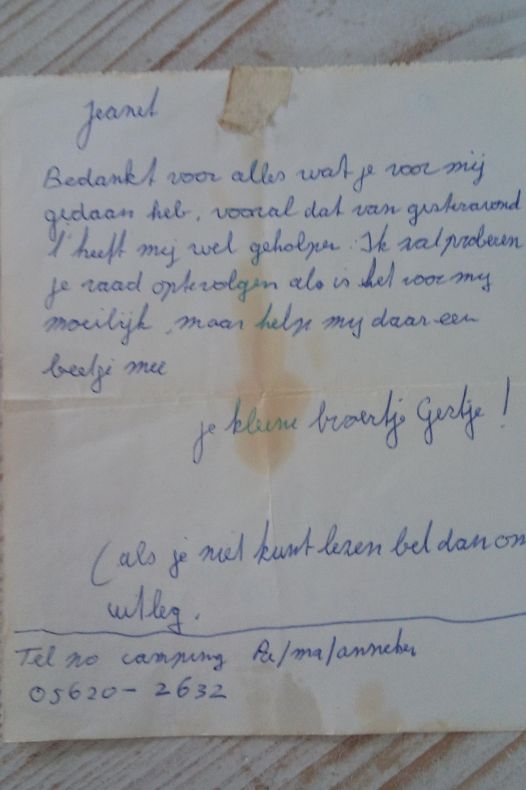 Jeanet
Bedankt voor alles wat je voor mij
gedaan heb, vooral dat van gisteravond
't heeft mij wel geholpen. Ik zal proberen
je raad optevolgen als is het voor mij
moeilijk, maar help mij daar een
beetje mee
je kleine broertje Gertje!
(als je niet kunt lezen bel dan om
uitleg.
Tel no camping Pa/ma/
05620-2632